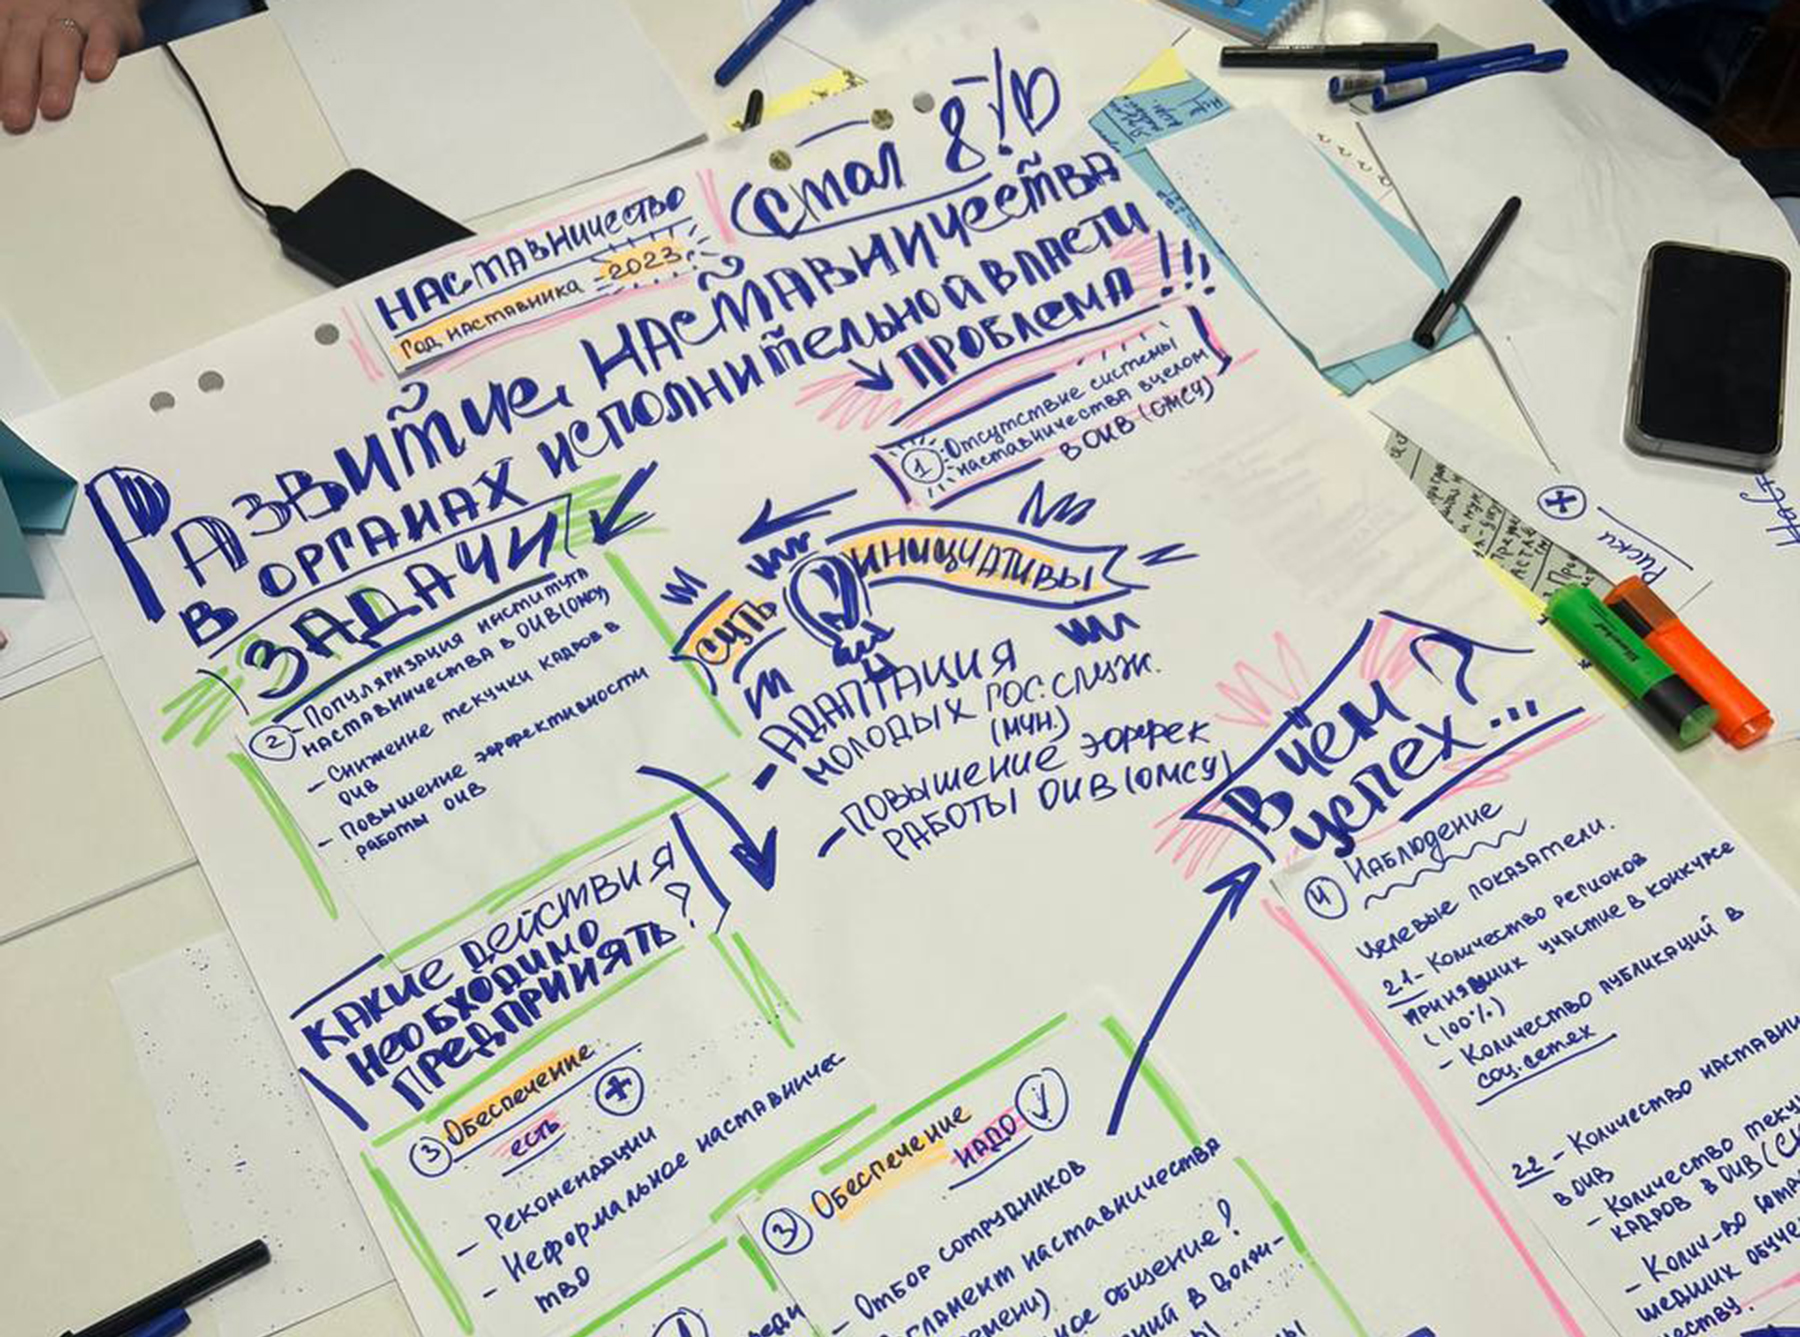 Стол 8
НАСТАВНИЧЕСТВО
Год наставника - 2023
РАЗВИТИЕ НАСТАВНИЧЕСТВА
В ОРГАНАХ ИСПОЛНИТЕЛЬНОЙ ВЛАСТИ
ПРОБЛЕМА!!!
1 Отсутствие системы
наставничества в целом
в ОИВ (ОМСУ)
ЗАДАЧИ
2 - Популяризация института
наставничества в ОИВ (ОМСУ)
- Снижение текучки кадров в
ОИВ
- Повышение эффективности
работы ОИВ
СУТЬ
ИНИЦИАТИВЫ
- АДАПТАЦИЯ
МОЛОДЫХ ГОС. СЛУЖ.
(МУН.)
- ПОВЫШЕНИЕ ЭФФЕК
РАБОТЫ ОИВ (ОМСУ)
КАКИЕ ДЕЙСТВИЯ
НЕОБХОДИМО
ПРЕДПРИЯТЬ?
3 Обеспечение
есть +
- Рекомендации
- Неформальное наставничес
тво
3 Обеспечение
НАДО
- Отбор сотрудников
гламент наставничества
ное общение?
ний в долж-
В ЧЁМ ?
УСПЕХ...
4 Наблюдение
Целевые показатели.
2.1 - Количество регионов
принявших участие в конкурсе
(100%)
- Количество публикаций в
соц. сетях
2.2 - Количество наставни
в ОИВ
- Количество текуч
кадров в ОИВ (
- Колич-во сотр
шедших обуче
еству.
+
Риски